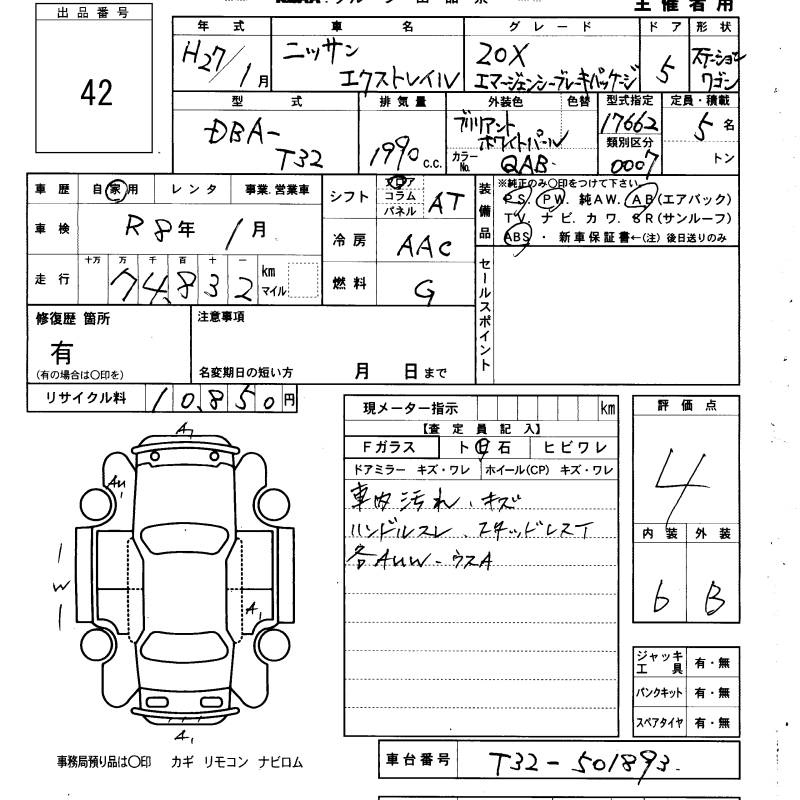 主催者用
出品番号
42
年式 車名 グレード ドア 形状
H27/1月 ニッサン エクストレイル 20X エマージェンシーブレーキパッケージ 5 ステーションワゴン
型式 排気量 外装色 色替 型式指定 定員・積載
DBA-T32 1990 c.c. ブリリアントホワイトパール 17662 5名
カラーNo. QAB 類別区分 0007 トン
車歴 自家用 レンタ 事業.営業車
車検 R8年 1月
走行 十万 万 千 百 十 一
74,832 km マイル
シフト フロア コラム パネル AT
冷房 AAC
燃料 G
装備品 ※純正のみ〇印をつけて下さい
PS. PW. 純AW. AB(エアバック)
TV. ナビ. カワ. SR(サンルーフ)
ABS ・ 新車保証書←(注) 後日送りのみ
セールスポイント
修復歴 箇所
有
(有の場合は〇印を)
注意事項
名変期日の短い方 月 日まで
リサイクル料 10,850円
現メーター指示 km
【査定員記入】
Fガラス ト日石 ヒビワレ
ドアミラー キズ・ワレ ホイール(CP) キズ・ワレ
車内汚れ・キズ
ハンドルスレ、スキッドレスT
各AUW・ウスA
評価点
4
内装 外装
6 B
A1
AU1
W
A1
A1
ジャッキ工具 有・無
パンクキット 有・無
スペアタイヤ 有・無
事務局預り品は〇印 カギ リモコン ナビロム
車台番号 T32-501893